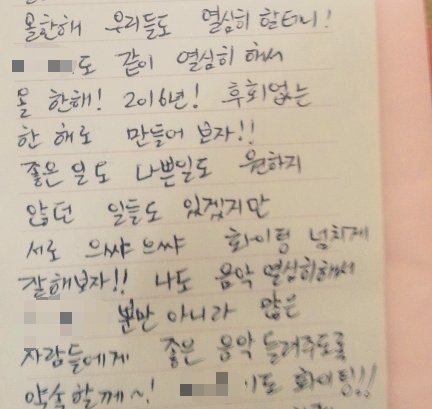 올한해 우리들도 열심히 할터니!
도 같이 열심히 해서
올 한해! 2016년! 후회없는
한 해로 만들어 보자!!
좋은일도 나쁜일도 원하지
않던 일들도 있겠지만
서로 으쌰으쌰 화이팅 넘치게
잘해보자!! 나도 음악 열심히해서
뿐만 아니라 많은
사람들에게 좋은 음악 들려주도록
약속할께~! 이도 화이팅!!